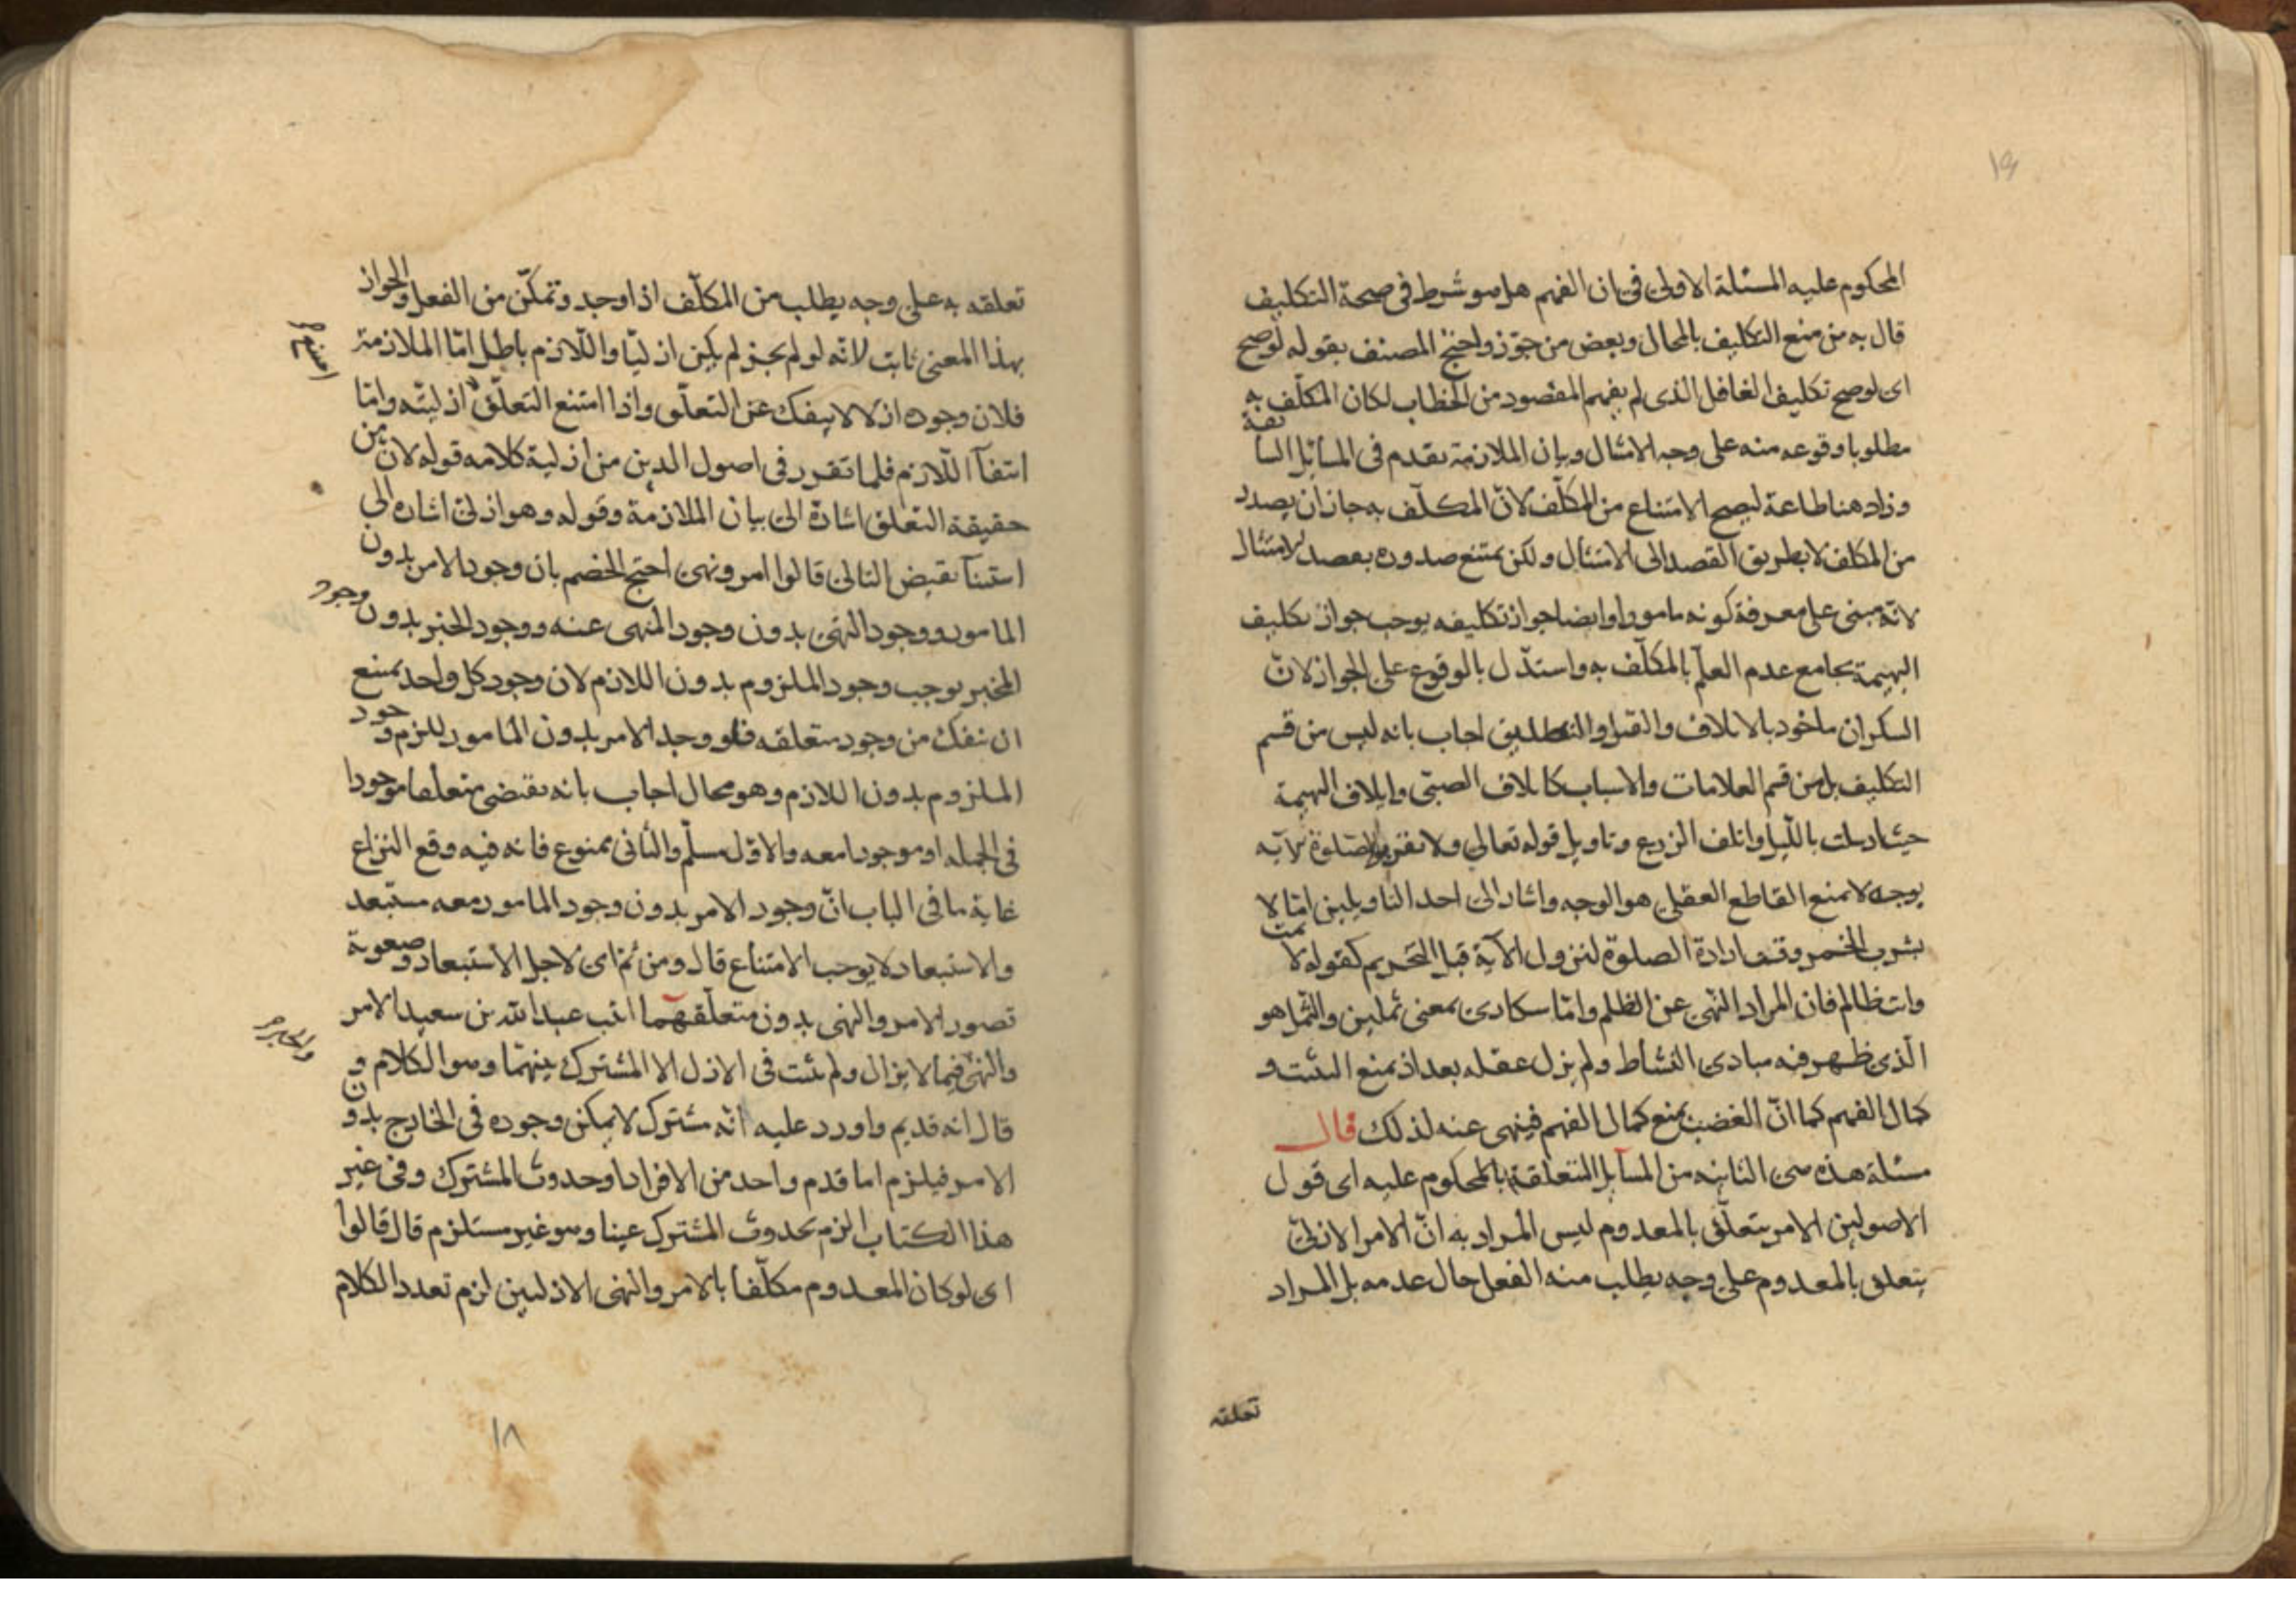 ١٩
المحكوم عليه المسئلة الاولى فى ان الفهم هل هو شرط فى صحة التكليف
قال به من منع التكليف بالمحال وبعض من جوّز واحتج المصنف بقوله لو صح
اى لو صح تكليف الغافل الذى لم يفهم المقصود من الخطاب لكان المكلّف به
مطلوبا وقوعه منه على وجه الامتثال وبيان الملازمة تقدم فى المسائل السابقة
وزاد هنا طاعة ليصح الامتناع من المكلّف لانّ المكلّف به جاز ان يصدر
من المكلف لا بطريق القصد الى الامتثال ولكن يمتنع صدوره بقصد الامتثال
لانّه مبنى على معرفة كونه مامورا وايضا جواز تكليفه يوجب جواز تكليف
البهيمة بجامع عدم العلم بالمكلّف به واستدّل بالوقوع على الجواز لانّ
السكران ماخوذ بالاتلاف والقتل والتطليق اجاب بانه ليس من قسم
التكليف بل من قسم العلامات والاسباب كاتلاف الصبّى واتلاف البهيمة
حيث ارسلت بالليل واتلف الزرع وتاويل قوله تعالي ولا تقربوا الصلوة الآيه
يوجه لا منع القاطع العقلى هو الوجه واشار الى احد التاويلين امّا لا
بشرب الخمر وقت ارادة الصلوة لنزول الآية قبل التحريم كقوله لا تمت
وانت ظالم فان المراد النّهى عن الظلم وامّا سكارى بمعنى ثملين والثّمل هو
الّذى ظهر فيه مبادى النّشاط ولم يزل عقله بعد اذ يمنع التثبت و
كمال الفهم كما انّ الغضب يمنع كمال الفهم فينهى عنه لذلك قال
مسئلة هذه هى الثانيه من المسآيل المتعلّقة بالمحكوم عليه اى قول
الاصولين الامر يتعلّق بالمعدوم ليس المراد به انّ الامر الازلىّ
يتعلق بالمعدوم على وجه يطلب منه الفعل حال عدمه بل المراد
تعلقه
تعلقه به على وجه يطلب من المكلّف اذا وجد وتمكّن من الفعل والجواز
بهذا المعنى ثابت لانّه لو لم يجز لم يكن ازليّا واللّازم باطل امّا الملازمة
فلان وجوده ازلا لا ينفك عن التعلّق واذا امتنع التعلّق ازليّته وامّا
امتنع صح
انتفآ اللّازم فلما تقرر فى اصول الدين من ازلية كلامه قوله لان من
حقيقة التعلق اشارة الى بيان الملازمة وقوله وهو ازلىّ اشاره الى
استثنآ نقيض التالى قالوا امر ونهى احتج الخصم بان وجود الامر بدون
المامور ووجود النهى بدون وجود المنهى عنه ووجود الخبر بدون وجود
المخبر يوجب وجود الملزوم بدون اللازم لان وجود كل واحد يمتنع
ان ينفك من وجود متعلقه فلو وجد الامر بدون المامور للزم وجود
الملزوم بدون اللازم وهو محال اجاب بانه يقتضى متعلقا موجودا
فى الجمله او موجودا معه والاوّل مسلّم والثانى ممنوع فانه فيه وقع النزاع
غاية ما فى الباب انّ وجود الامر بدون وجود المامور معه مستبعد
والاستبعاد لا يوجب الامتناع قال ومن ثم اى لاجل الاستبعاد وصعوبة
تصور الامر والنهى بدون متعلّقهما اثبت عبد الله بن سعيد الامر
والنهى فيما لا يزال ولم يثبت فى الازل الا المشترك بينهما وهو الكلام و
والخبر صح
قال انه قديم واورد عليه انّه مشترك لا يمكن وجوده فى الخارج بدون
الامر فيلزم اما قدم واحد من الافراد او حدوث المشترك وفى غير
هذا الكتاب الزم بحدوث المشترك عينا وهو غير مستلزم قال قالوا
اى لو كان المعدوم مكلّفا بالامر والنهى الازليين لزم تعدد الكلام
١٨